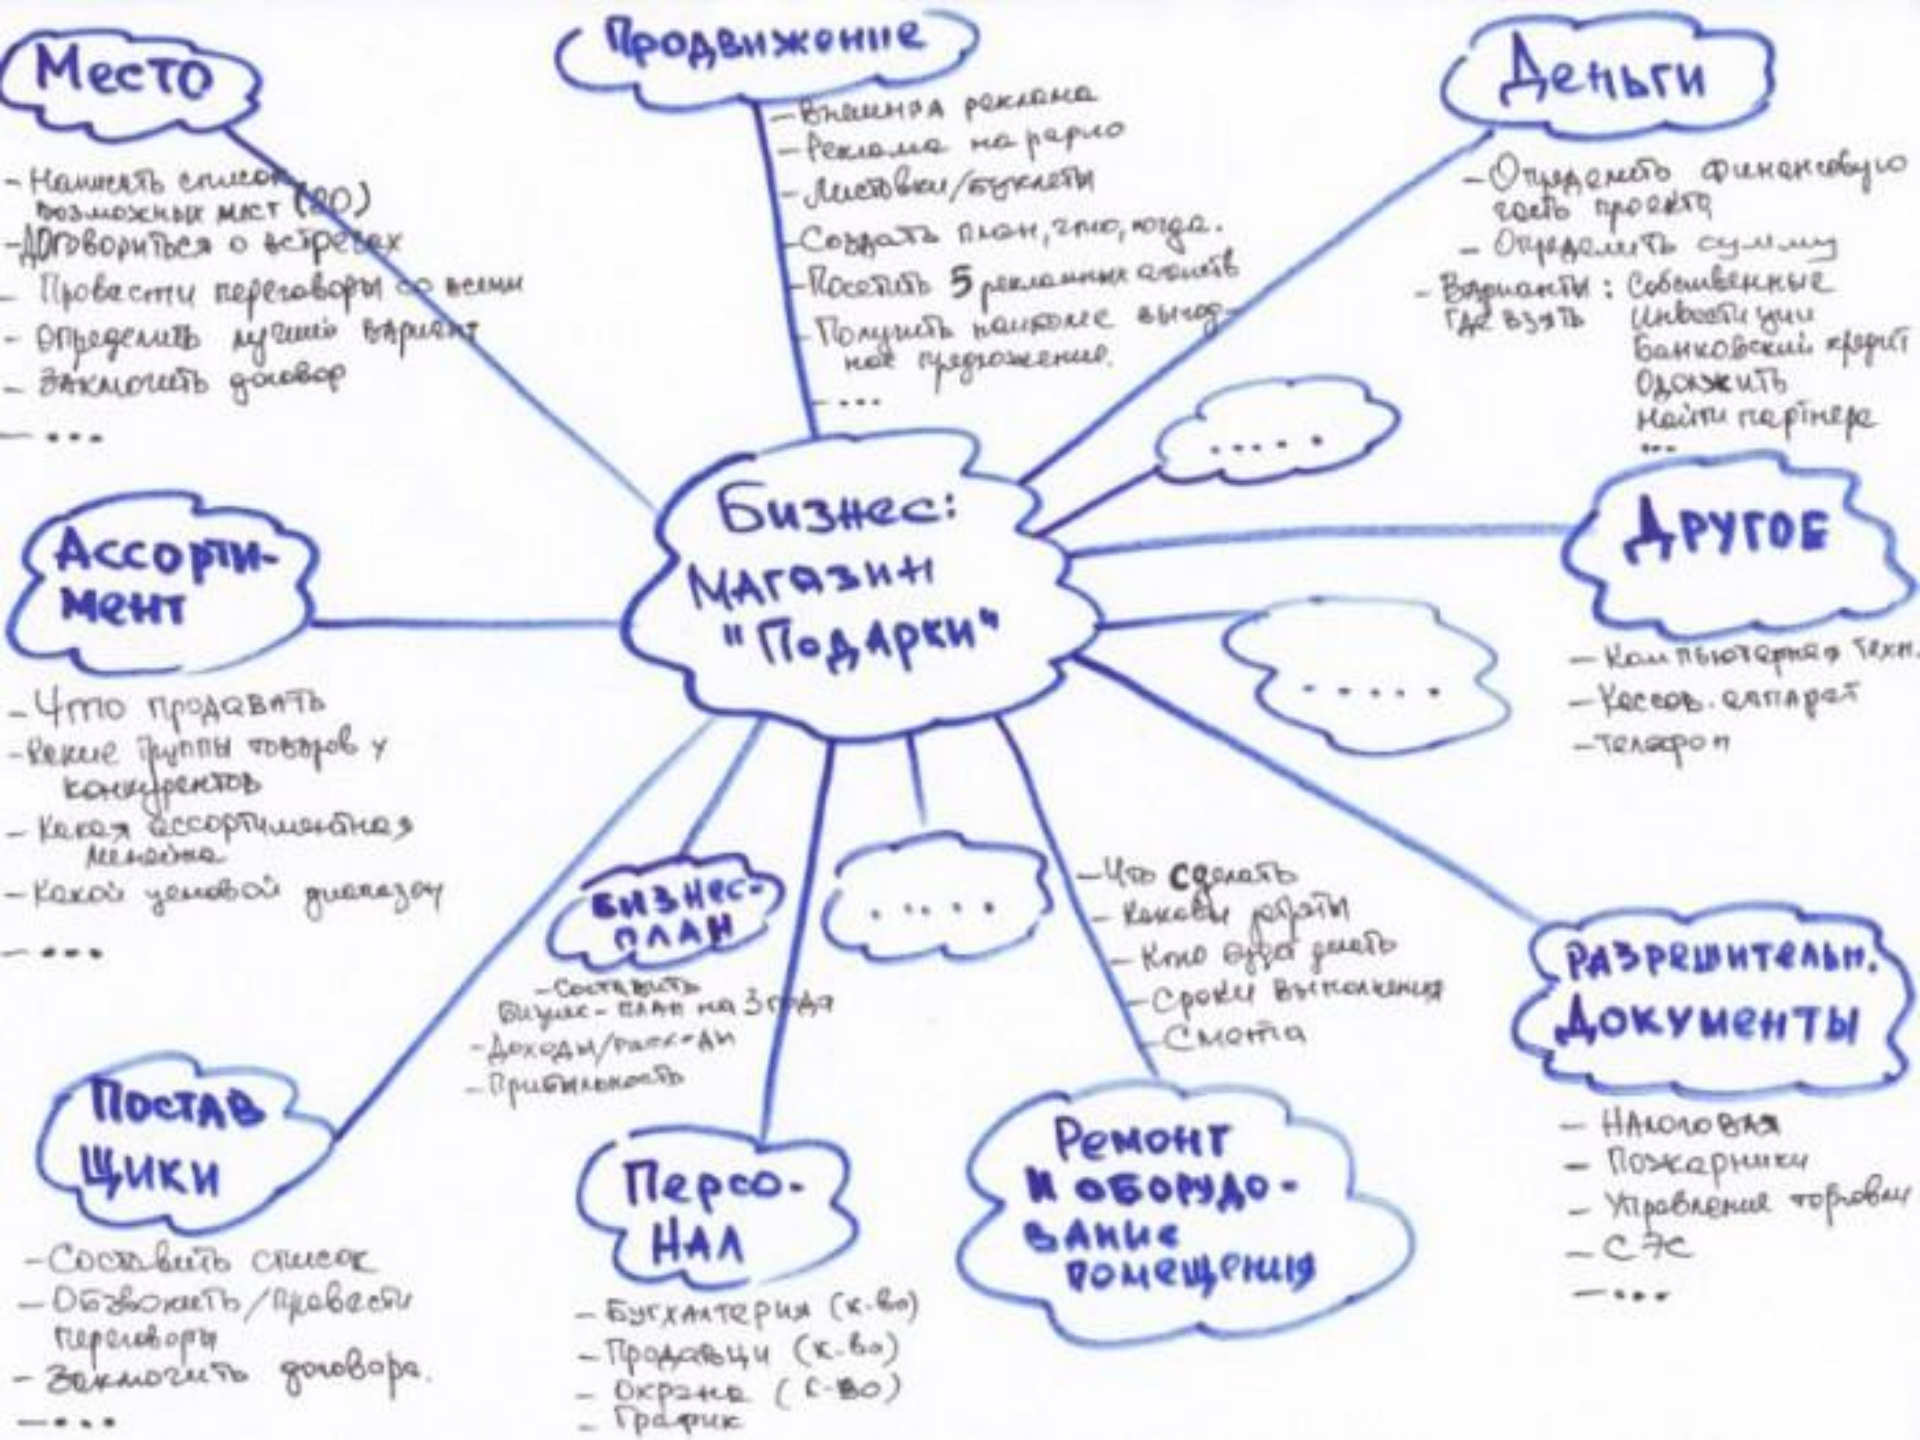 Место
- Написать список
возможных мест (20)
- Договориться о встречах
- Провести переговоры со всеми
- Определить лучший вариант
- Заключить договор
- ...
Продвижение
- Внешняя реклама
- Реклама на радио
- Листовки/буклеты
- Создать план, что, когда.
- Посетить 5 рекламных агенств
- Получить наиболее выгод-
ное предложение.
- ...
Деньги
- Определить финансовую
часть проекта
- Определить сумму
- Варианты: Собственные
где взять Инвестиции
Банковский кредит
Одолжить
Найти партнера
...
.....
Бизнес:
Магазин
"Подарки"
Ассорти-
мент
- Что продавать
- Какие группы товаров у
конкурентов
- Какая ассортиментная
- Какой ценовой диапазон
- ...
Другое
- Компьютерная техн.
- Кассов. аппарат
- Телефон
.....
Бизнес-
план
- Составить
Бизнес-план на 3 года
- Доходы/расходы
- Прибыльность
.....
- Что сделать
- Каковы затраты
- Кто будет делать
- Сроки выполнения
- Смета
Ремонт
и оборудо-
вание
помещения
Разрешительн.
документы
- Налоговая
- Пожарники
- Управление торговли
- СЭС
- ...
Постав
щики
- Составить список
- Обзвонить/провести
переговоры
- Заключить договора.
- ...
Персо-
нал
- Бухгалтерия (к-во)
- Продавцы (к-во)
- Охрана (к-во)
- График